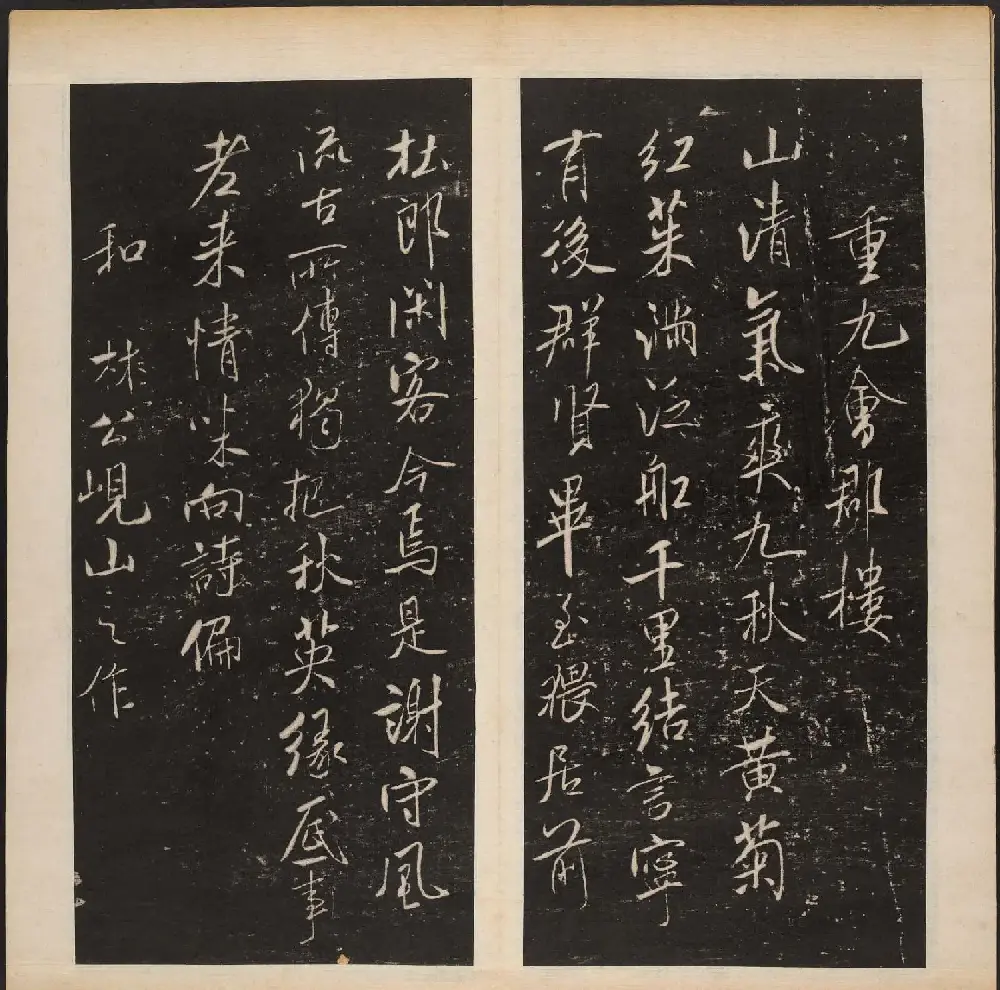 重九會郡樓
山清氣爽九秋天黃菊
紅茱滿泛船千里結言寧
有後群賢畢至猥居前
杜郎閑客今焉是謝守風
流古所傳獨把秋英緣底事
老来情味向詩偏
和林公峴山之作